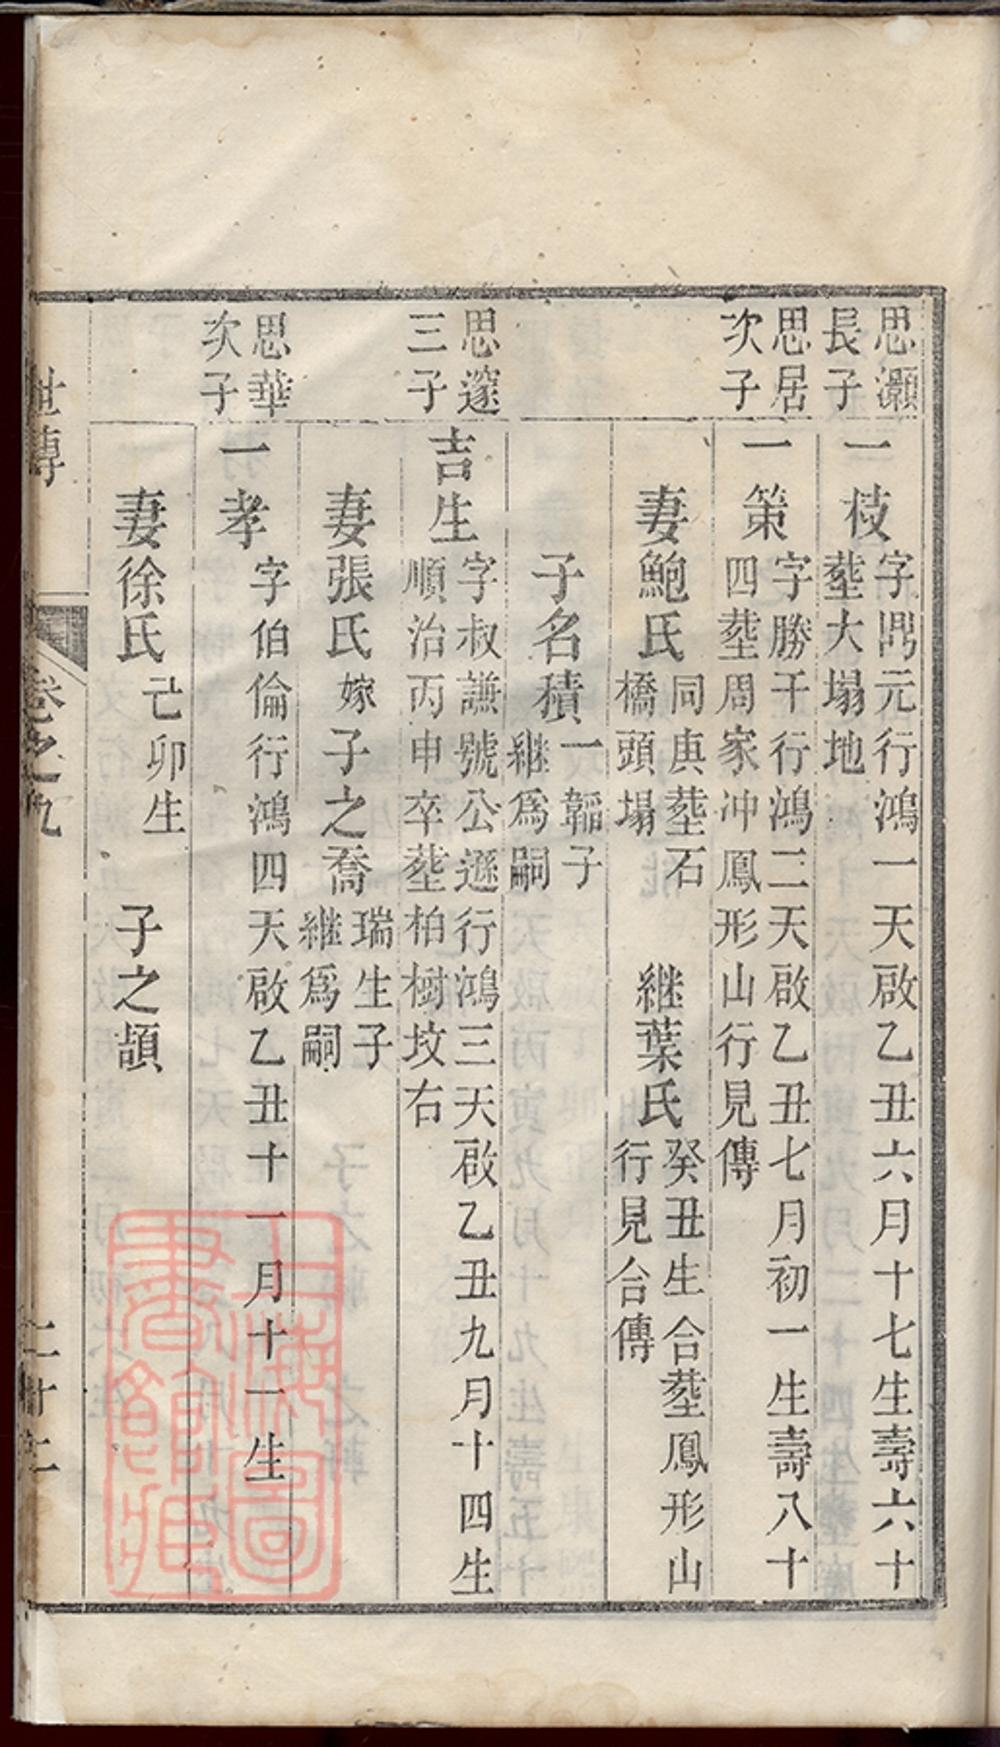 思灝
長子
一枝
字鼎元行鴻一天啟乙丑六月十七生壽六十
塟大塌地
思居
次子
一策
字勝千行鴻二天啟乙丑七月初一生壽八十
四塟周家冲鳳形山行見傳
妻鮑氏
同庚塟石
橋頭塌
継葉氏
癸丑生合塟鳳形山
行見合傳
子名積
一韜子
継爲嗣
思邃
三子
吉生
字叔謙號公遜行鴻三天啟乙丑九月十四生
順治丙申卒塟柏樹坟右
妻張氏
嫁
子之喬
瑞生子
継爲嗣
思華
次子
一孝
字伯倫行鴻四天啟乙丑十一月十一生
妻徐氏
己卯生
子之頡
世傳
卷之九
二十二
上海圖
書館藏